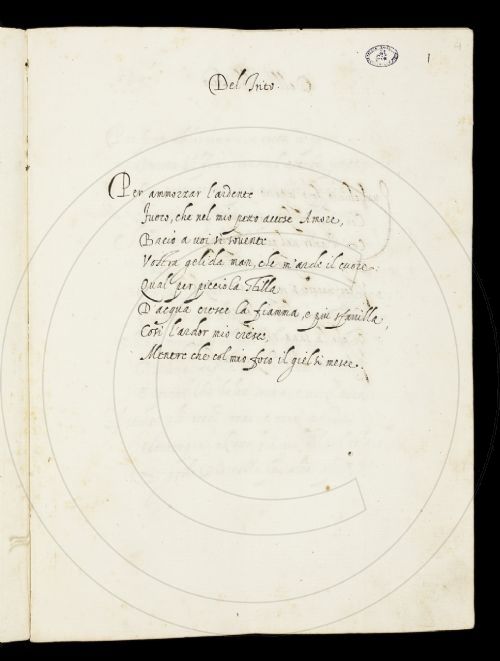 1
Del Trito.
Per ammorzar l'ardente
fuoco, che nel mio petto accese Amore,
Bacio a uoi sì souente
Vostra gelida man, che m'arde il cuore:
Qual per picciola stilla
D'acqua cresce la fiamma, e più sfauilla,
Così l'ardor mio cresce,
Mentre che col mio foco il giel si mesce.